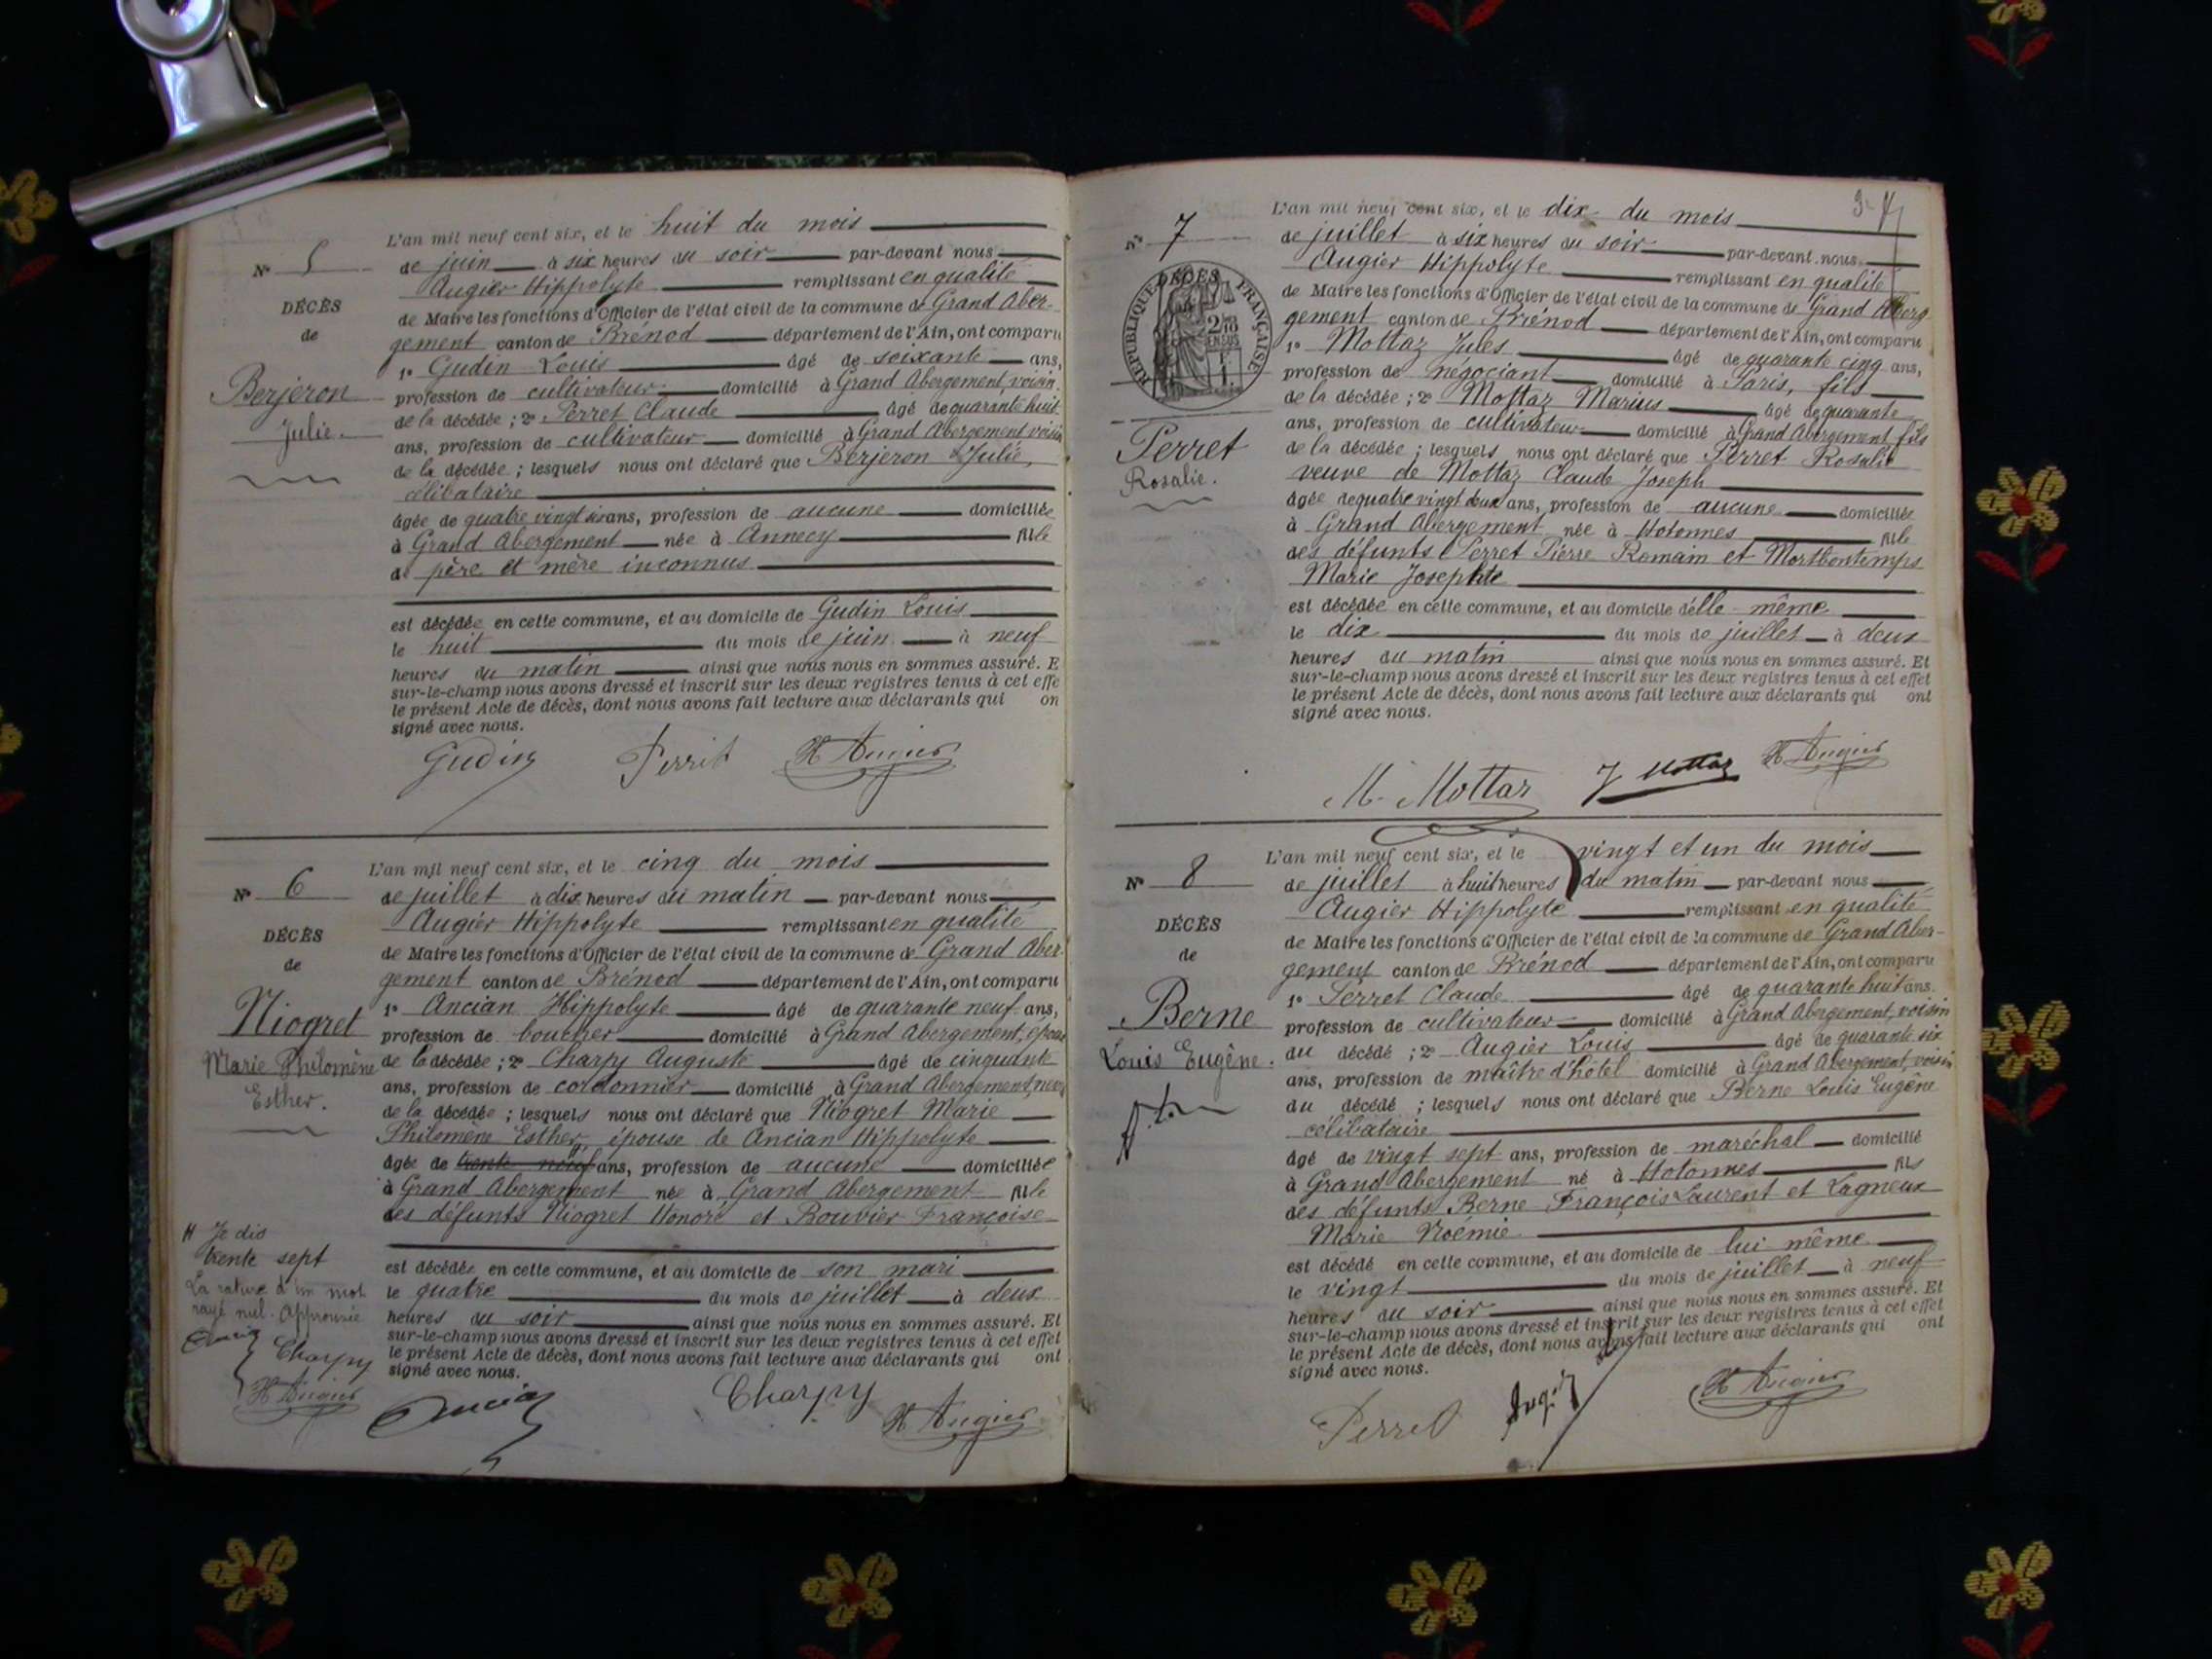 L'an mil neuf cent six, et le huit du mois
Nº 5
de juin à six heures du soir par-devant nous
Augier Hippolyte remplissant en qualité
DÉCÈS
de Maire les fonctions d'Officier de l'état civil de la commune de Grand Aber-
de
gement canton de Brénod département de l'Ain, ont comparu
1º Gudin Louis âgé de soixante ans,
Berjeron
profession de cultivateur domicilié à Grand Abergement, voisin
Julie.
de la décédée ; 2º Perret Claude âgé de quarante huit
ans, profession de cultivateur domicilié à Grand Abergement voisin
de la décédée ; lesquels nous ont déclaré que Berjeron Julie,
célibataire
âgée de quatre vingt six ans, profession de aucune domiciliée
à Grand Abergement née à Annecy fille
de père et mère inconnus
est décédée en cette commune, et au domicile de Gudin Louis
le huit du mois de juin à neuf
heures du matin ainsi que nous nous en sommes assuré. E
sur-le-champ nous avons dressé et inscrit sur les deux registres tenus à cet effe
le présent Acte de décès, dont nous avons fait lecture aux déclarants qui on
signé avec nous.
Gudin Perret H Augier
L'an mil neuf cent six, et le cinq du mois
Nº 6
de juillet à dix heures du matin par-devant nous
Augier Hippolyte remplissant en qualité
DÉCÈS
de Maire les fonctions d'Officier de l'état civil de la commune de Grand Aber-
de
gement canton de Brénod département de l'Ain, ont comparu
Niogret
1º Ancian Hippolyte âgé de quarante neuf ans,
profession de boucher domicilié à Grand Abergement, époux
Marie Philomène
de la décédée ; 2º Charpy Auguste âgé de cinquante
Esther.
ans, profession de cordonnier domicilié à Grand Abergement,
de la décédée ; lesquels nous ont déclaré que Niogret Marie
Philomène Esther, épouse de Ancian Hippolyte
âgée de trente neuf ans, profession de aucune domiciliée
à Grand Abergement née à Grand Abergement fille
des défunts Niogret Honoré et Bouvier Françoise
H Je dis
trente sept
La rature d'un mot
rayé nul. Approuvée
Charpy
H Augier
est décédée en cette commune, et au domicile de son mari
le quatre du mois de juillet à deux
heures du soir ainsi que nous nous en sommes assuré. Et
sur-le-champ nous avons dressé et inscrit sur les deux registres tenus à cet effet
le présent Acte de décès, dont nous avons fait lecture aux déclarants qui ont
signé avec nous.
Ancian Charpy H Augier
L'an mil neuf cent six, et le dix du mois
Nº 7
de juillet à six heures du soir par-devant nous
Augier Hippolyte remplissant en qualité
DÉCÈS
RÉPUBLIQUE FRANÇAISE
2/10 EN SUS
de Maire les fonctions d'Officier de l'état civil de la commune de Grand Aberg
gement canton de Brénod département de l'Ain, ont comparu
1º Mottaz Jules âgé de quarante cinq ans,
profession de négociant domicilié à Paris, fils
de la décédée ; 2º Mottaz Marius âgé de quarante
Perret
Rosalie.
ans, profession de cultivateur domicilié à Grand Abergement fils
de la décédée ; lesquels nous ont déclaré que Perret Rosalie
veuve de Mottaz Claude Joseph
âgée de quatre vingt deux ans, profession de aucune domiciliée
à Grand Abergement née à Hotonnes fille
des défunts Perret Pierre Romain et Mortbontemps
Marie Josephte
est décédée en cette commune, et au domicile d'elle même
le dix du mois de juillet à deux
heures du matin ainsi que nous nous en sommes assuré. Et
sur-le-champ nous avons dressé et inscrit sur les deux registres tenus à cet effet
le présent Acte de décès, dont nous avons fait lecture aux déclarants qui ont
signé avec nous.
M. Mottaz J Mottaz H Augier
L'an mil neuf cent six, et le vingt et un du mois
Nº 8
de juillet à huit heures du matin par-devant nous
Augier Hippolyte remplissant en qualité
DÉCÈS
de Maire les fonctions d'Officier de l'état civil de la commune de Grand Aber-
de
gement canton de Brénod département de l'Ain, ont comparu
1º Perret Claude âgé de quarante huit ans.
Berne
profession de cultivateur domicilié à Grand Abergement, voisin
Louis Eugène.
du décédé ; 2º Augier Louis âgé de quarante six
ans, profession de maître d'hôtel domicilié à Grand Abergement, voisin
du décédé ; lesquels nous ont déclaré que Berne Louis Eugène
célibataire
âgé de vingt sept ans, profession de maréchal domicilié
à Grand Abergement né à Hotonnes fils
des défunts Berne François Laurent et Lagneux
Marie Noémie
est décédé en cette commune, et au domicile de lui même
le vingt du mois de juillet à neuf
heures du soir ainsi que nous nous en sommes assuré. Et
sur-le-champ nous avons dressé et inscrit sur les deux registres tenus à cet effet
le présent Acte de décès, dont nous avons fait lecture aux déclarants qui ont
signé avec nous.
Perret Augier H Augier